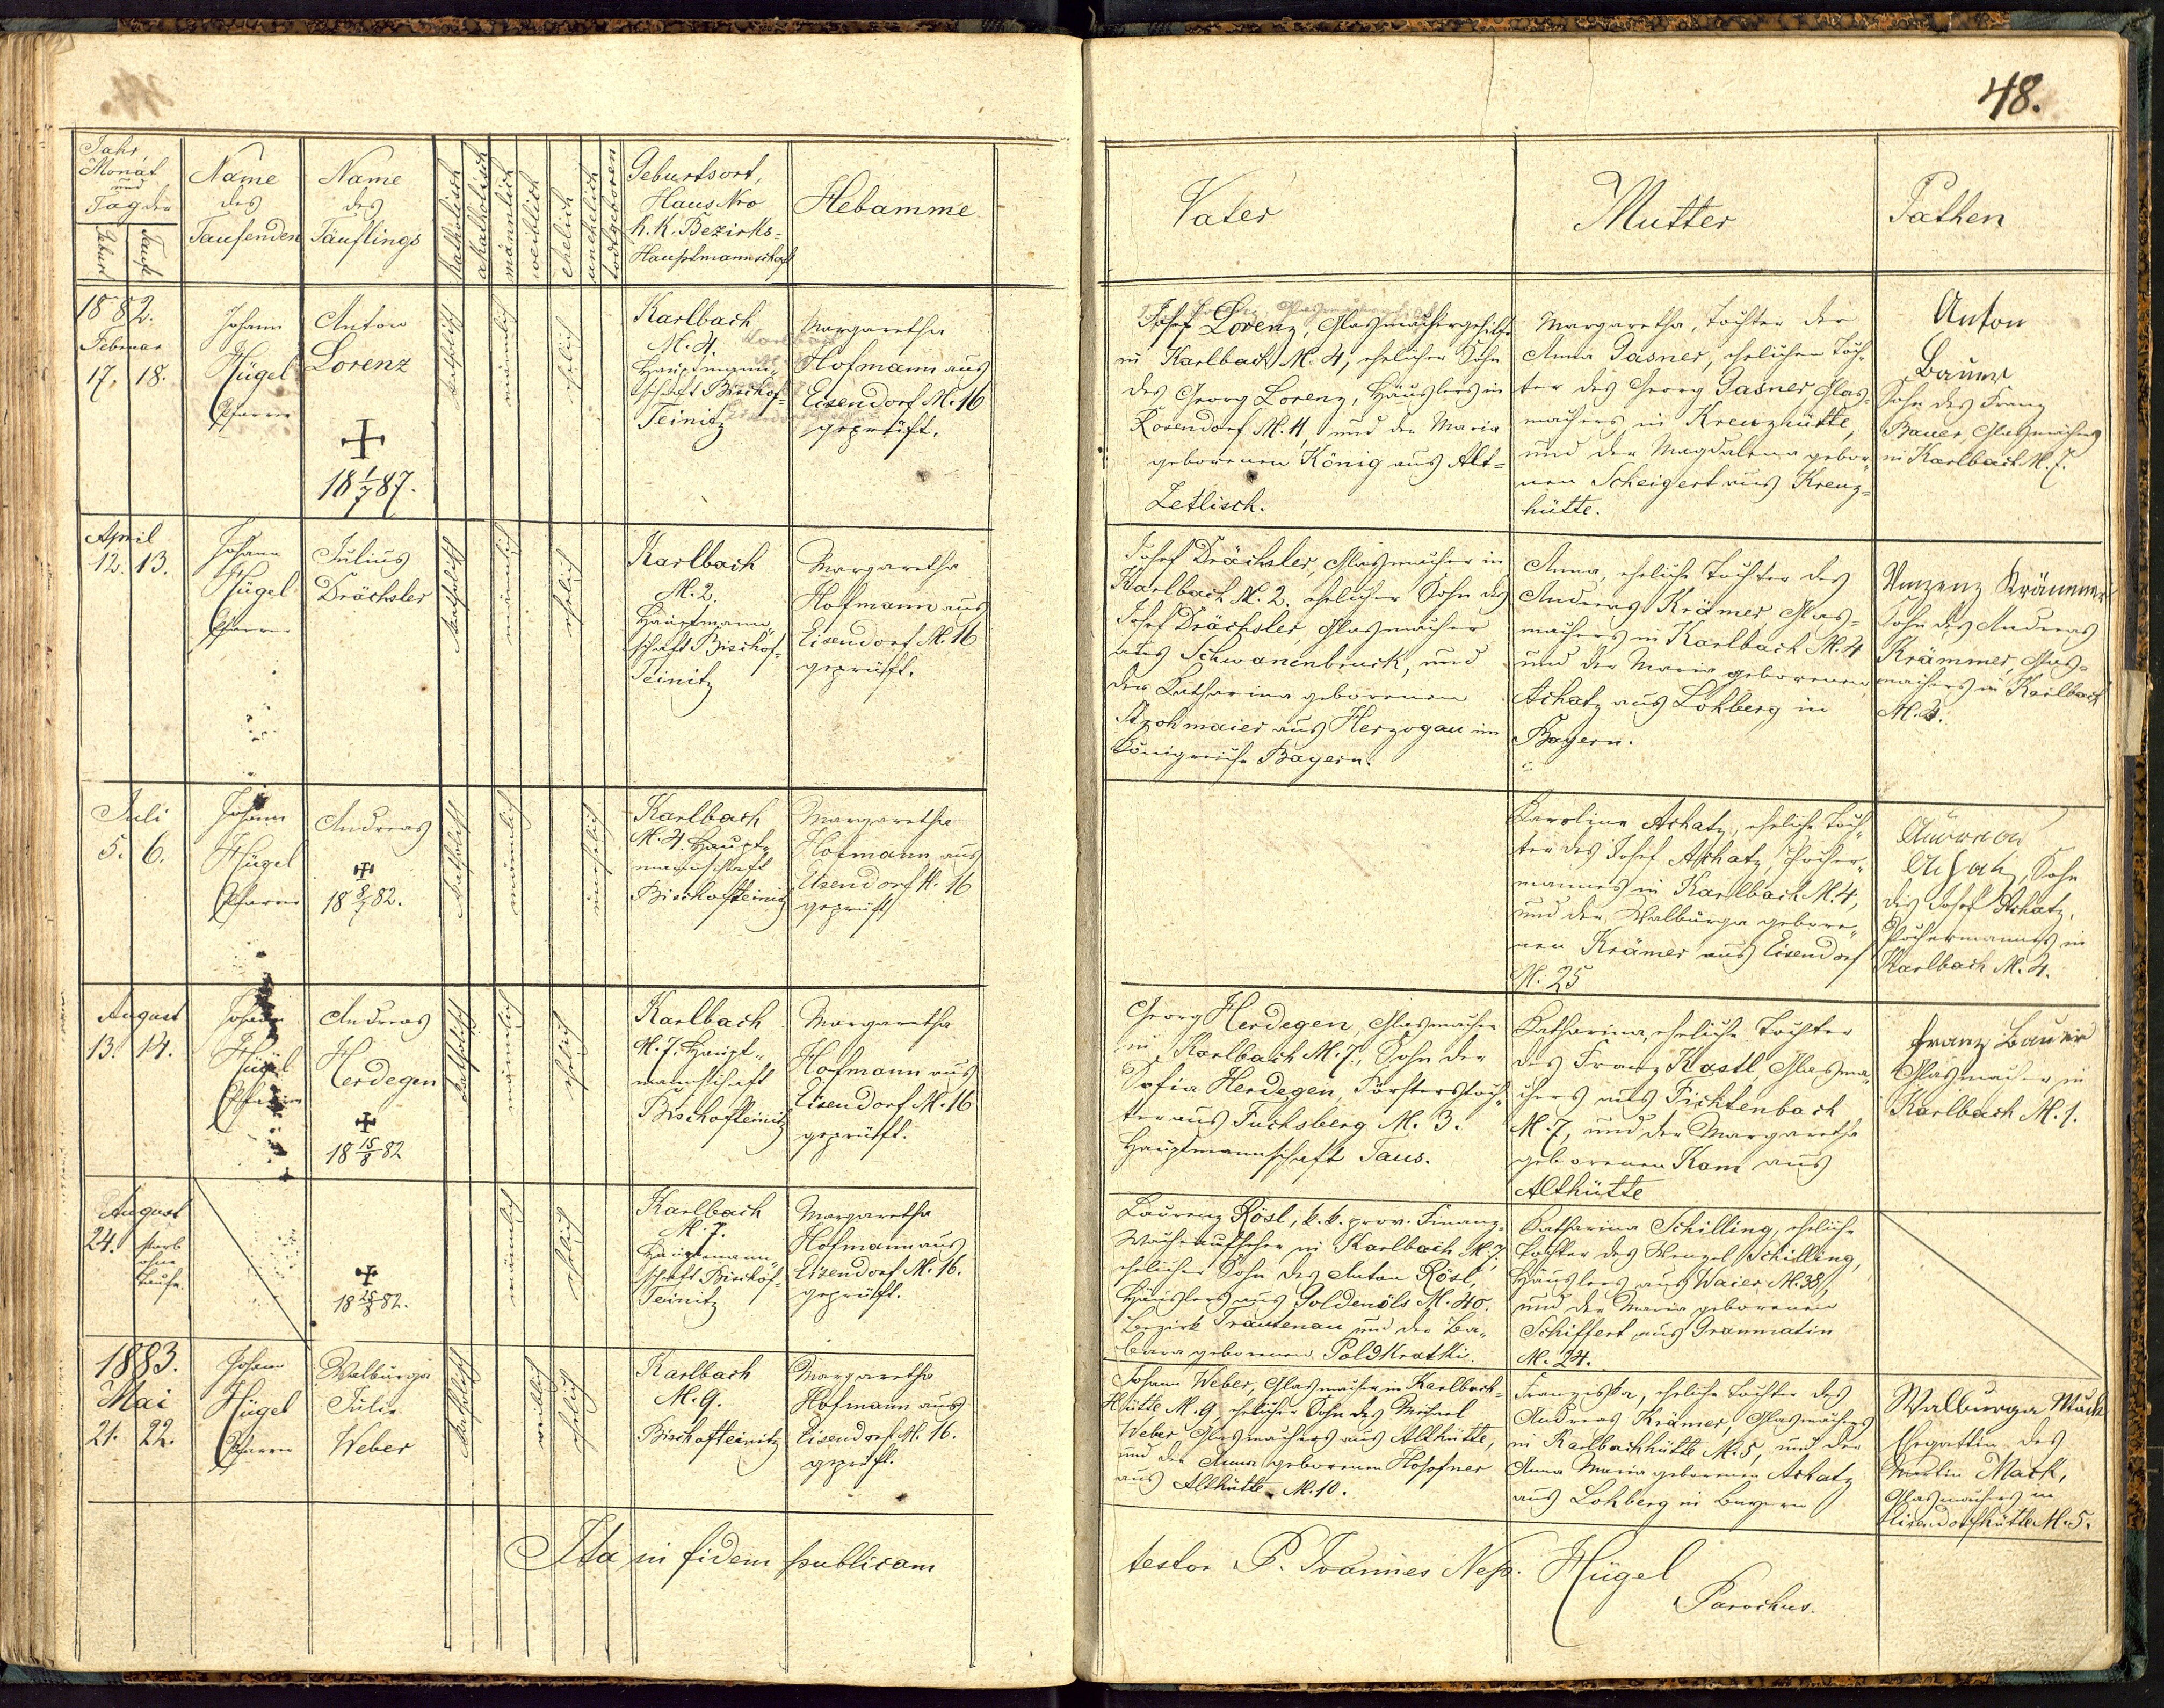 48.
Jahr,
Monat
und
Tag der
Geburt
Taufe
Name
des
Taufenden
Name
des
Täuflings
katholisch
akatholisch
männlich
weiblich
ehelich
unehelich
todtgeboren
Geburtsort,
Haus Nro
k. k. Bezirks-
Hauptmannschaft
Hebamme
Vater
Mutter
Pathen
1882.
Februar
17. 18.
Johann
Hügel
Pfarrer
Anton
Lorenz
18 1/7 87.
katholisch
männlich
ehelich
Karlbach
N. 4.
Hauptmann-
schaft Bischof-
Teinitz
Margaretha
Hofmann aus
Eisendorf N. 16
geprüft.
Josef Lorenz, Glasmachergehilfe
in Karlbach N. 4, ehelicher Sohn
des Georg Lorenz, Häuslers in
Rosendorf N. 11, und der Maria
geborenen König aus Alt-
Zetlisch.
Margaretha, Tochter der
Anna Gasner, ehelichen Toch-
ter des Georg Gasner Glas-
machers in Kreuzhütte,
und der Magdalena gebor-
nen Scheigert aus Kreuz-
hütte.
Anton
Bauer
Sohn des Franz
Bauer, Glasmachers
in Karlbach N. 7.
April
12. 13.
Johann
Hügel
Pfarrer
Julius
Drächsler
katholisch
männlich
ehelich
Karlbach
N. 2.
Hauptmann-
schaft Bischof-
Teinitz
Margaretha
Hofmann aus
Eisendorf N. 16
geprüft.
Josef Drächsler, Glasmacher in
Karlbach N. 2, ehelicher Sohn des
Josef Drächsler Glasmacher
aus Schwanenbruck, und
der Katharina geborenen
aus Herzogau im
Königreiche Bayern.
Anna, eheliche Tochter des
Andreas Krämer, Glas-
machers in Karlbach N. 4
und der Maria geborenen
Achatz aus Lohberg in
Bayern.
Vinzenz Krämmer
Sohn des Andreas
Krämmer, Glas-
machers in Karlbach
N. 4.
Juli
5. 6.
Johann
Hügel
Pfarrer
Andreas
18 8/7 82.
katholisch
männlich
unehelich
Karlbach
N. 4. Haupt-
mannschaft
Bischofteinitz
Margaretha
Hofmann aus
Eisendorf N. 16
geprüft
Karolina Achatz, eheliche Toch-
ter des Josef Achatz, Pocher-
mannes in Karlbach N. 4,
und der Walburga gebore-
nen Krämer aus Eisendorf
N. 25
Andreas
Achatz, Sohn
des Josef Achatz,
Pochermannes in
Karlbach N. 4.
August
13. 14.
Johann
Hügel
Pfarrer
Andreas
Herdegen
18 15/8 82
katholisch
männlich
ehelich
Karlbach
N. 7. Haupt-
mannschaft
Bischofteinitz
Margaretha
Hofmann aus
Eisendorf N. 16
geprüft.
Georg Herdegen, Glasmacher
in Karlbach N. 7., Sohn der
Sofia Herdegen, Försterstoch-
ter aus Fuchsberg N. 3.
Hauptmannschaft Taus.
Katharina, eheliche Tochter
des Franz Kastl, Glasma-
chers aus Fichtenbach
N. 7, und der Margaretha
geborenen Kom aus
Althütte
Franz Bauer
Glasmacher in
Karlbach N. 1.
August
24. starb
ohne
Taufe
18 25/8 82.
männlich
ehelich
Karlbach
N. 7.
Hauptmann-
schaft Bischof-
Teinitz
Margaretha
Hofmann aus
Eisendorf N. 16.
geprüft.
Laurenz Rösl, k. k. prov. Finanz-
Wachaufseher in Karlbach N. 7,
ehelicher Sohn des Anton Rösl,
Häuslers aus Goldenöls N. 40.
Bezirk Trautenau und der Bar-
bara geborenen Poldkratki.
Katharina Schilling, eheliche
Tochter des Wenzel Schilling,
Häuslers aus Waier N. 38,
und der Maria geborenen
Schiffert aus Grammatin
N. 24.
1883.
Mai
21. 22.
Johann
Hügel
Pfarrer
Walburga
Julie
Weber
katholisch
weiblich
ehelich
Karlbach
N. 9.
Bischofteinitz
Margaretha
Hofmann aus
Eisendorf N. 16.
geprüft.
Johann Weber, Glasmacher in Karlbach-
Hütte N. 9 ehelicher Sohn des Michael
Weber Glasmachers aus Althütte,
und der Anna geborenen Hopfner
aus Althütte N. 10.
Franziska, eheliche Tochter des
Andreas Krämer, Glasmachers
in Karlbachhütte N. 5, und der
Anna Maria geborenen Achatz
aus Lohberg in Bayern
Walburga Mack
Ehegattin des
Martin Mack,
Glasmachers in
Eisendorfhütte N. 5.
Ita in fidem publicam
testor P. Joannes Nep. Hügel
Parochus.